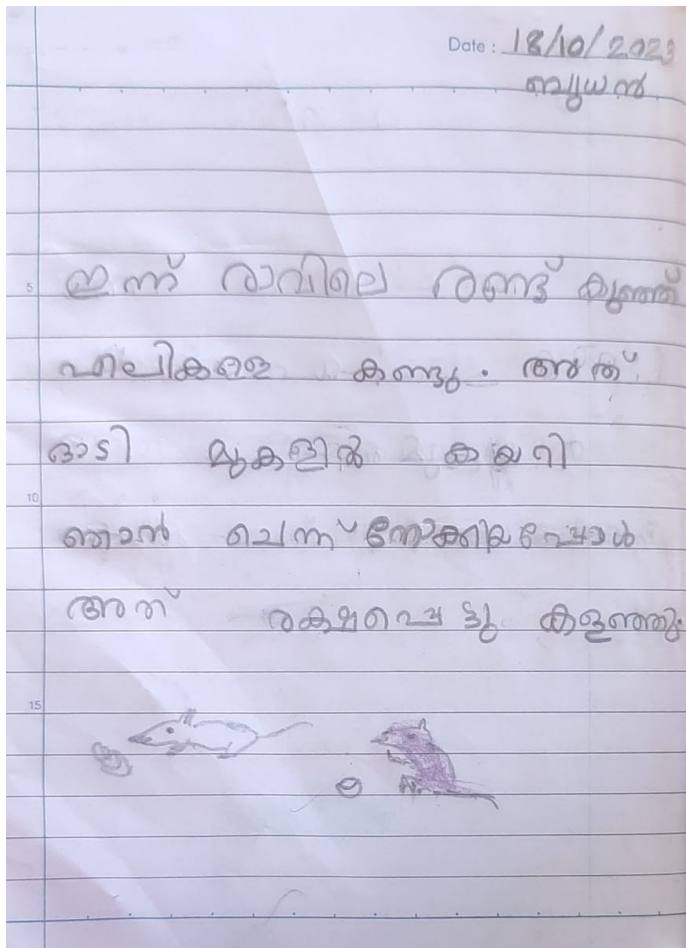 Date : 18/10/2023
ബുധൻ
5
ഇന്ന് രാവിലെ രണ്ട് കുഞ്ഞ്
എലികളെ കണ്ടു. അത്
ഓടി മുകളിൽ കയറി
10
ഞാൻ ചെന്ന് നോക്കിയപ്പോൾ
അത് രക്ഷപ്പെട്ടു കളഞ്ഞു.
15